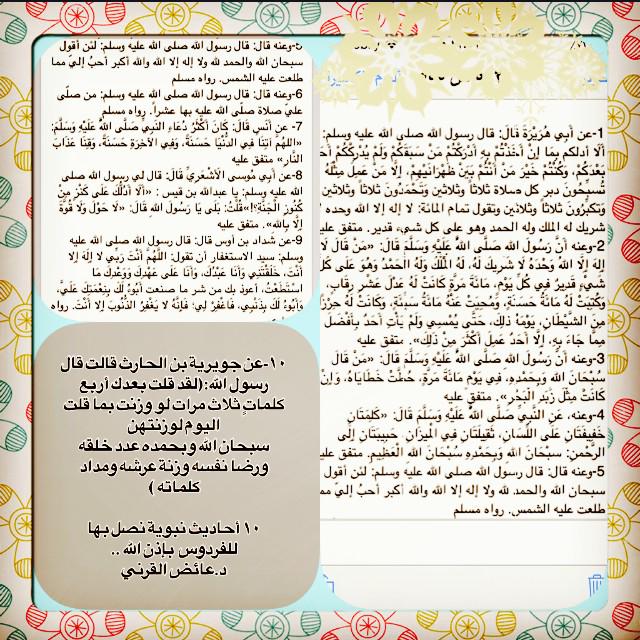 1-عن أبي هُرَيْرَةَ قَالَ: قال رسول الله صلى الله عليه وسلم:
ألا أدلكم بما إنْ أَخَذْتُمْ بِهِ أَدْرَكْتُمْ مَنْ سَبَقَكُمْ وَلَمْ يُدْرِكْكُمْ
بَعْدَكُمْ، وَكُنْتُمْ خَيْرَ مَنْ أَنْتُمْ بَيْنَ ظَهْرَانَيْهِمْ، إِلَّا مَنْ عَمِلَ مِثْلَهُ
تُسبِّحُونَ دبر كل صلاة ثلاثاً وثلاثين وَتَحْمَدُونَ ثلاثاً وثلاثين
وَتكبِّرُونَ ثلاثاً وثلاثين وتقول تمام المائة: لا إله إلا الله وحده
شريك له الملك وله الحمد وهو على كل شيء قدير. متفق
2-وعنه أَنَّ رَسُولَ اللَّهِ صَلَّى اللَّهُ عَلَيْهِ وَسَلَّمَ قَالَ: «مَنْ قَالَ لَا
إِلَهَ إِلَّا اللَّهُ وَحْدَهُ لَا شَرِيكَ لَهُ، لَهُ الْمُلْكُ وَلَهُ الحَمْدُ وَهُوَ عَلَى كُلِّ
شَيْءٍ قَدِيرٌ فِي كُلِّ يَوْمٍ، مَائَةَ مَرَّةٍ كَانَتْ لَهُ عَدْلَ عَشْرِ رِقَابٍ،
وَكُتِبَتْ لَهُ مَائَةُ حَسَنَةٍ، وَمُحِيَتْ عَنْهُ مَائَةُ سَيِّئَةٍ، وَكَانَتْ لَهُ حِرْزًا
مِنَ الشَّيْطَانِ، يَوْمَهُ ذَلِكَ، حَتَّى يُمْسِيَ وَلَمْ يَأْتِ أَحَدٌ بِأَفْضَلَ
مِمَّا جَاءَ بِهِ، إِلَّا أَحَدٌ عَمِلَ أَكْثَرَ مِنْ ذَلِكَ». متفق عليه
3-وعنه أَنَّ رَسُولَ اللَّهِ صَلَّى اللَّهُ عَلَيْهِ وَسَلَّمَ قَالَ: «مَنْ قَالَ
سُبْحَانَ اللَّهِ وَبِحَمْدِهِ، فِي يَوْمٍ مَائَةَ مَرَّةٍ، حُطَّتْ خَطَايَاهُ، وَإِنْ
كَانَتْ مِثْلَ زَبَدِ الْبَحْرِ». متفق عليه
4-وعنه، عَنِ النَّبِيِّ صَلَّى اللَّهُ عَلَيْهِ وَسَلَّمَ قَالَ: «كَلِمَتَانِ
خَفِيفَتَانِ عَلَى اللِّسَانِ، ثَقِيلَتَانِ فِي الْمِيزَانِ، حَبِيبَتَانِ إِلَى
الرَّحْمَنِ: سُبْحَانَ اللَّهِ وَبِحَمْدِهِ سُبْحَانَ اللَّهِ الْعَظِيمِ. متفق
5-وعنه قال: قال رسول الله صلى الله عليه وسلم: لئن أقول
سبحان الله والحمد لله ولا إله إلا الله والله أكبر أحبُ إليّ مما
طلعت عليه الشمس. رواه مسلم
5-وعنه قال: قال رسول الله صلى الله عليه وسلم: لئن أقول
سبحان الله والحمد لله ولا إله إلا الله والله أكبر أحبُ إليّ مما
طلعت عليه الشمس. رواه مسلم
6-وعنه قال: قال رسول الله صلى الله عليه وسلم: من صلّى
عليّ صلاة صلّى الله عليه بها عشراً. رواه مسلم
7- عن أنَسٍ قَالَ: كَانَ أَكْثَرُ دُعَاءِ النَّبِيِّ صَلَّى اللَّهُ عَلَيْهِ وَسَلَّمَ:
«اللهُمَّ آتِنَا فِي الدُّنْيَا حَسَنَةً، وَفِي الآخِرَةِ حَسَنَةً، وَقِنَا عَذَابَ
النَّارِ» متفق عليه
8-عن أَبِي مُوسَى الْأَشْعَرِيِّ قَالَ: قال لي رسول الله صلى
الله عليه وسلم: يا عبدالله بن قيس : «أَلَا أَدُلُّكَ عَلَى كَنْزٍ مِنْ
كُنُوزِ الْجَنَّةِ؟!»قُلْتُ: بَلَى يَا رَسُولَ اللَّهِ قَالَ: «لَا حَوْلَ وَلَا قُوَّةَ
إِلَّا بِاللَّهِ». متفق عليه
9-عن شداد بن أوس قال: قال رسول الله صلى الله عليه
وسلم: سيد الاستغفار أن تقول: اللَّهُمَّ أَنْتَ رَبِّي لَا إِلَهَ إِلَّا
أَنْتَ، خَلَقْتَنِي وَأَنَا عَبْدُكَ، وَأَنَا عَلَى عَهْدِكَ وَوَعْدِكَ مَا
اسْتَطَعْتُ، أعوذ بك من شر ما صنعت أَبُوءُ لَكَ بِنِعْمَتِكَ عَلَيَّ،
وَأَبُوءُ لَكَ بِذَنْبِي، فَاغْفِرْ لِي؛ فَإِنَّهُ لَا يَغْفِرُ الذُّنُوبَ إِلَّا أَنْتَ. رواه
١٠-عن جويرية بن الحارث قالت قال
رسول الله:(لقد قلت بعدك أربع
كلماتٍ ثلاث مرات لو وزنت بما قلت
اليوم لوزنتهن
سبحان الله وبحمده عدد خلقه
ورضا نفسه وزنة عرشه ومداد
كلماته )
١٠ أحاديث نبوية نصل بها
للفردوس بإذن الله ..
د.عائض القرني